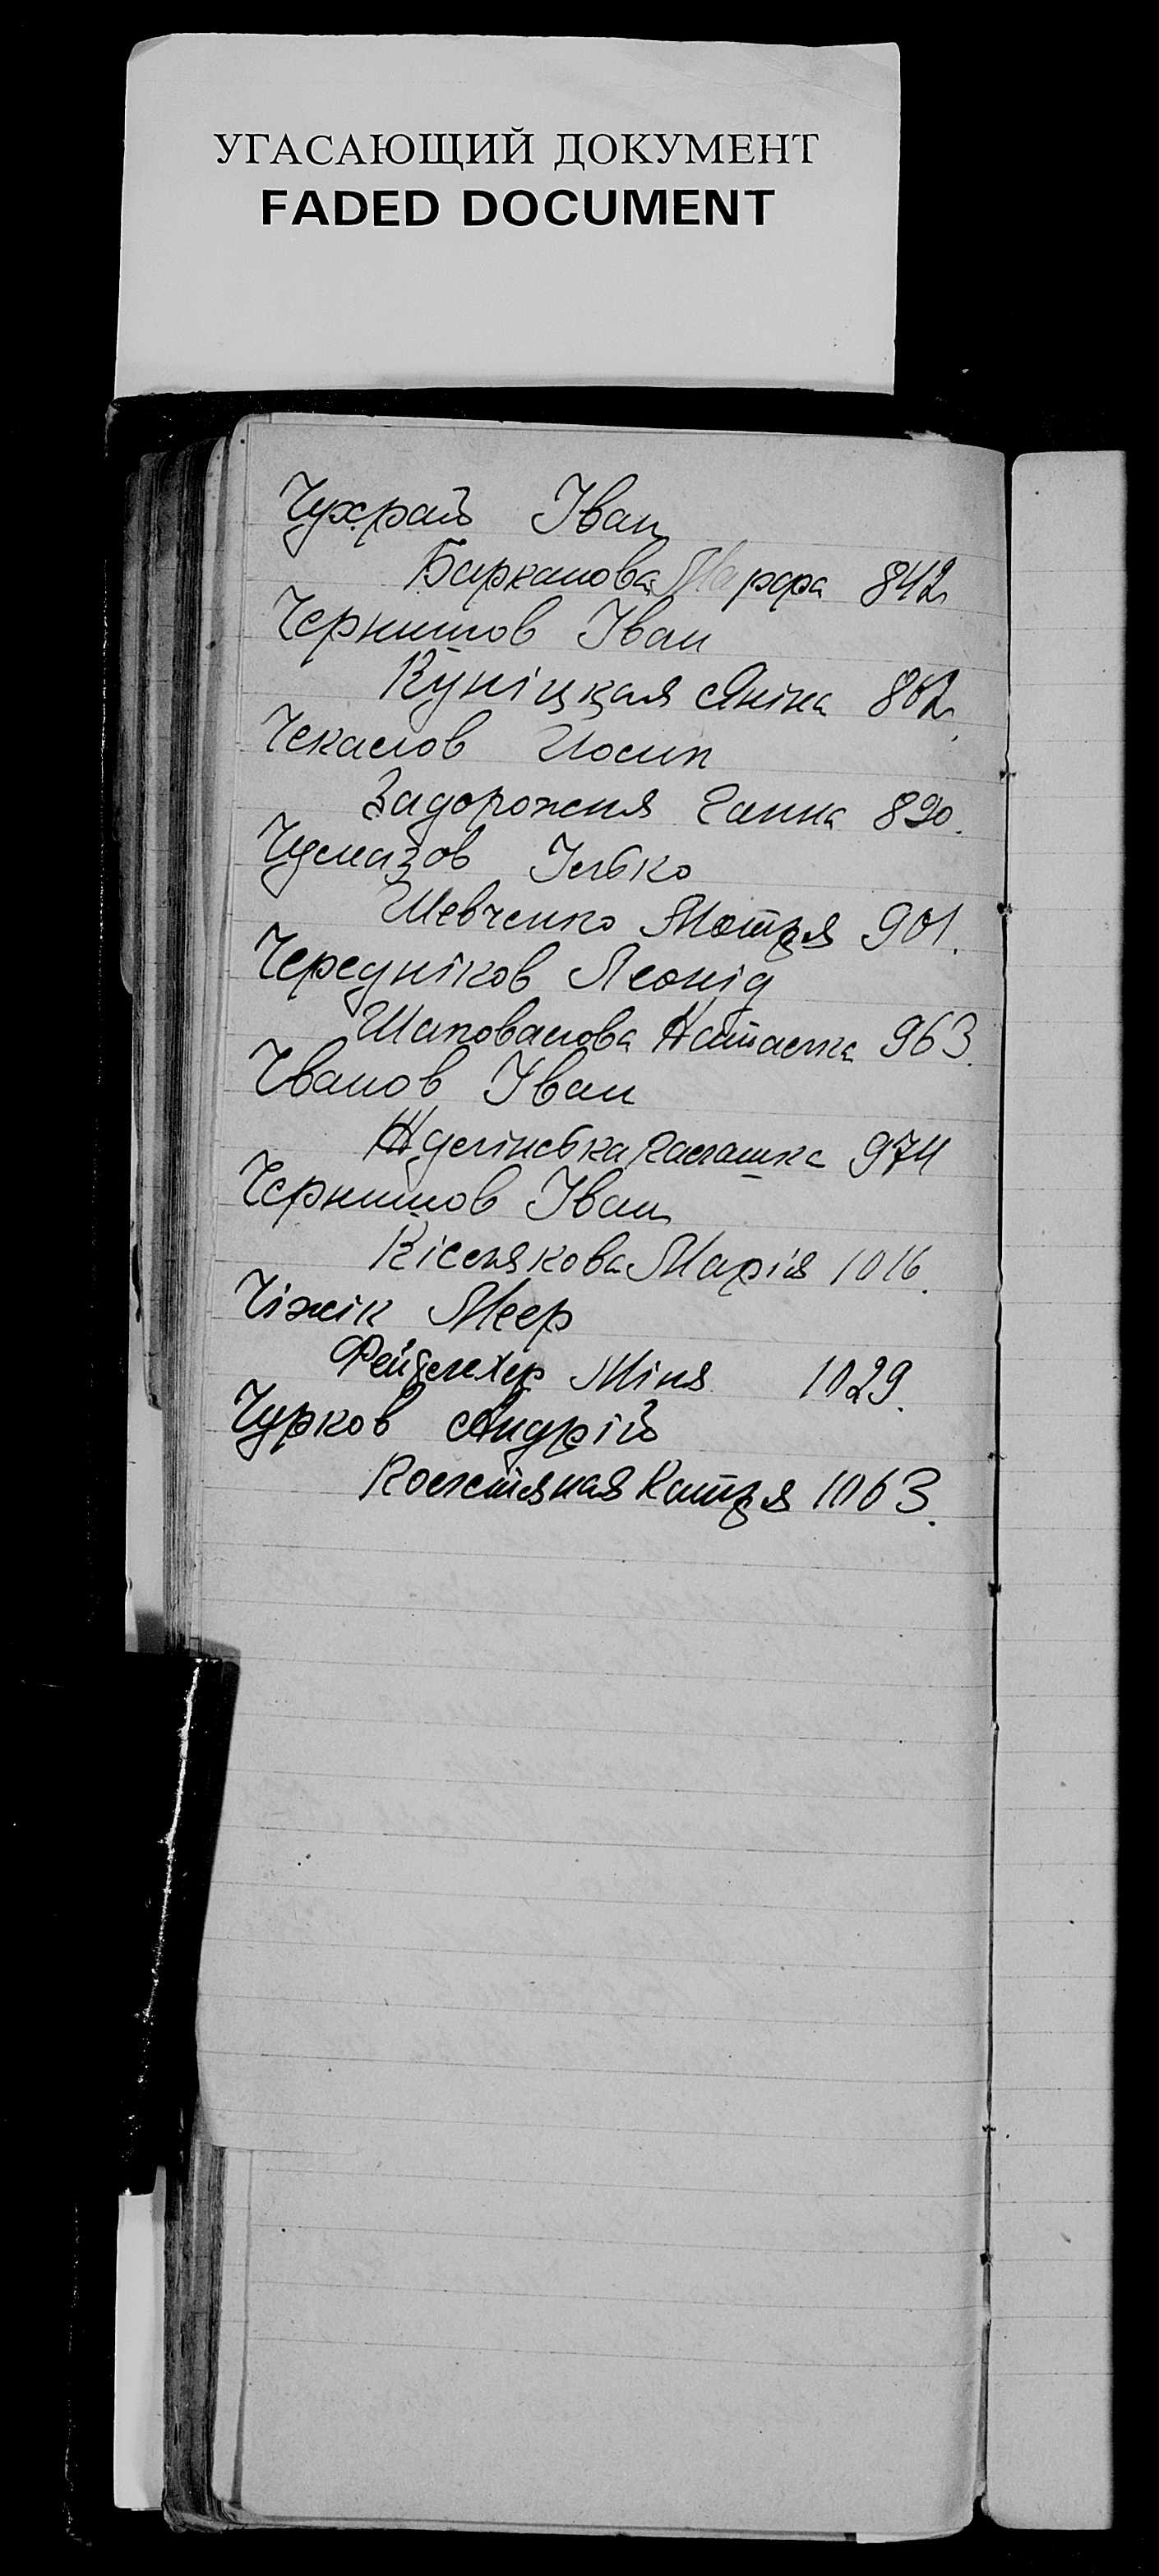 УГАСАЮЩИЙ ДОКУМЕНТ
FADED DOCUMENT
Чухрай Іван
Барканова Марфа 842
Чернишов Іван
Куніцкая Яніна 862
Чекалов Йосип
Задорожня Ганна 890.
Чумазов Ілько
Шевченко Мотря 901.
Чередніков Леонід
Шаповалова Наталка 963.
Чванов Іван
974
Чернишов Іван
Кіселякова Марія 1016.
Чіжік Меер
Міня 1029.
Чурков Андрій
Костяная Катря 1063.